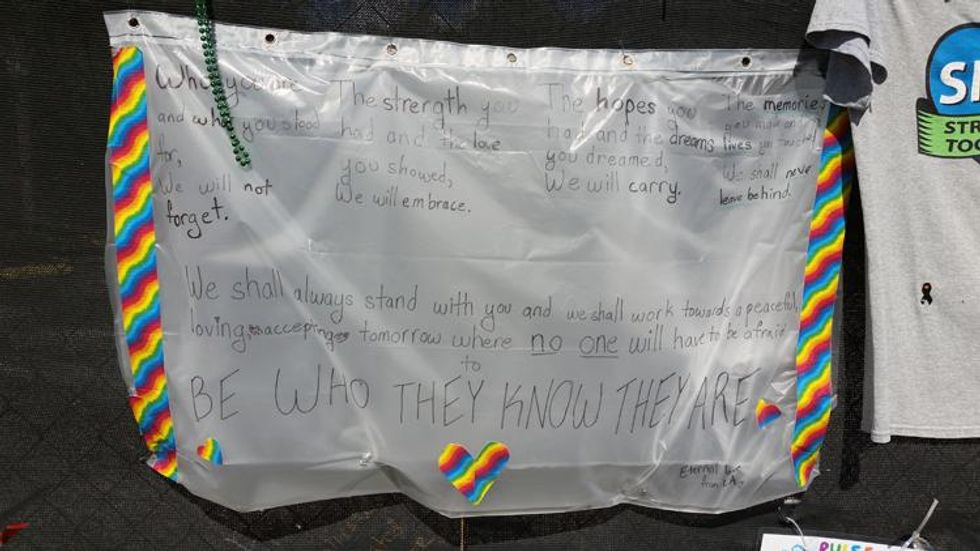 Who you are
and who you stood
for,
We will not
forget.
The strength you
had and the love
you showed,
We will embrace.
The hopes you
had and the dreams
you dreamed,
We will carry.
The memories
you made and
lives you touched
We shall never
leave behind.
We shall always stand with you and we shall work towards a peaceful,
loving, accepting tomorrow where no one will have to be afraid
to
BE WHO THEY KNOW THEY ARE
Eternal
from LA
STR
TOG
PULSE